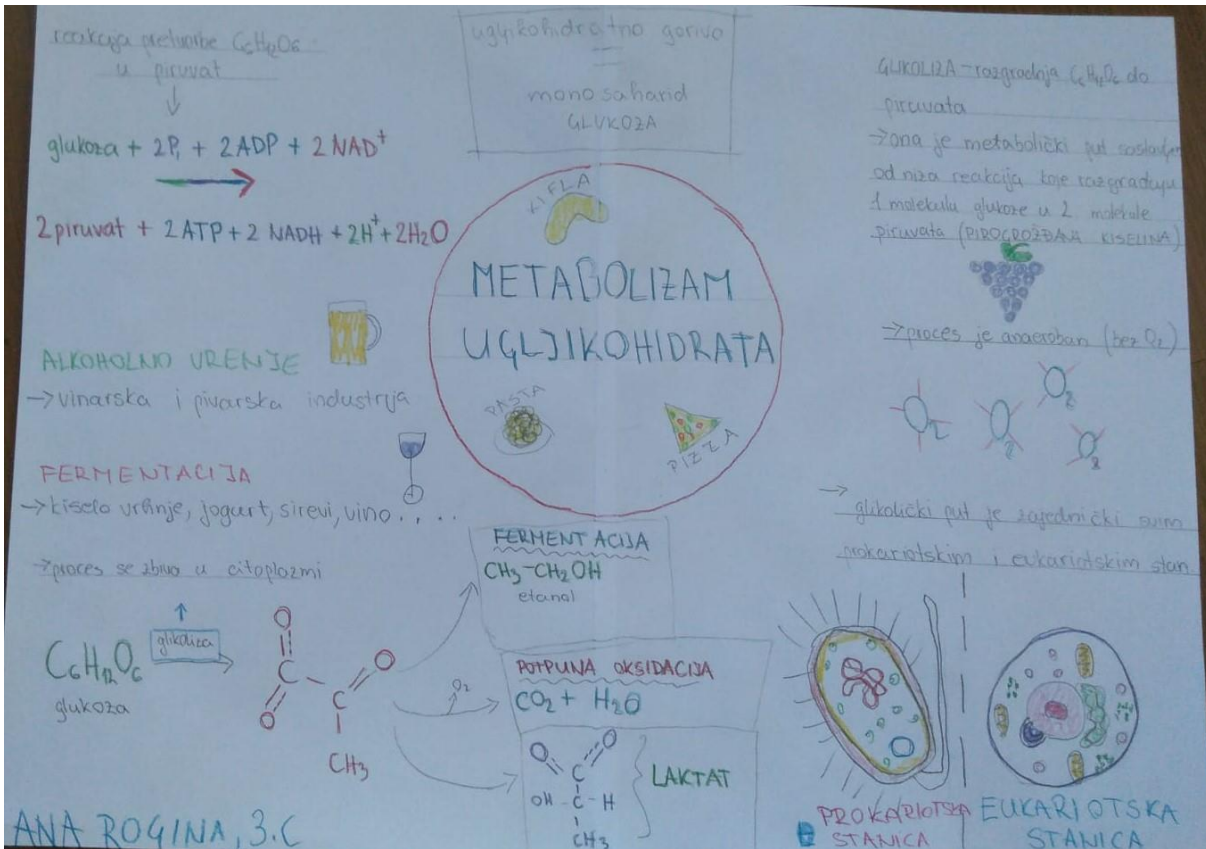 reakcija pretvorbe C₆H₁₂O₆
u piruvat
glukoza + 2Pᵢ + 2ADP + 2NAD⁺
2 piruvat + 2ATP + 2 NADH + 2H⁺ + 2H₂O
ALKOHOLNO VRENJE
→ vinarska i pivarska industrija
FERMENTACIJA
→ kiselo vrhnje, jogurt, sirevi, vino . . . .
→ proces se zbiva u citoplazmi
glikoliza
C₆H₁₂O₆
glukoza
O
C
O
C
O
CH₃
ANA ROGINA, 3.C
ugljikohidratno gorivo
monosaharid
GLUKOZA
KIFLA
METABOLIZAM
UGLJIKOHIDRATA
PASTA
PIZZA
FERMENTACIJA
CH₃-CH₂OH
etanol
O₂
POTPUNA OKSIDACIJA
CO₂ + H₂O
O O
C
OH - C - H
CH₃
LAKTAT
GLIKOLIZA - razgradnja C₆H₁₂O₆ do
piruvata
→ ona je metabolički put sastavljen
od niza reakcija koje razgrađuju
1 molekulu glukoze u 2 molekule
piruvata (PIROGROŽĐANA KISELINA)
→ proces je anaeroban (bez O₂)
O₂ O₂ O₂ O₂
→ glikolički put je zajednički svim
prokariotskim i eukariotskim stan.
PROKARIOTSKA
STANICA
EUKARIOTSKA
STANICA